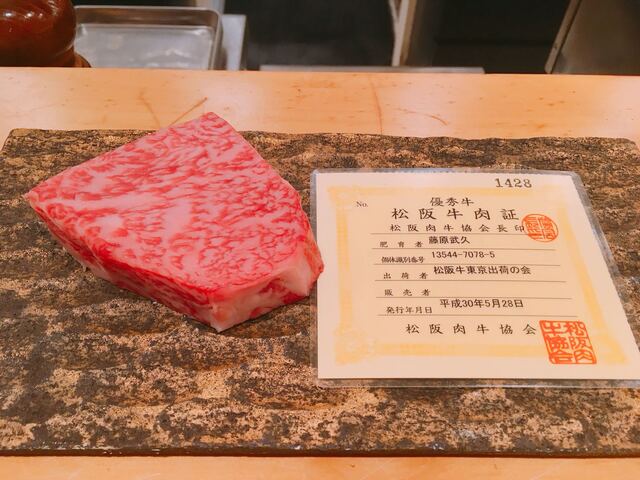 1428
No.
優秀牛
松阪牛肉証
松阪肉牛協会長印
肥育者 藤原武久
個体識別番号 13544-7078-5
出荷者 松阪牛東京出荷の会
販売者
発行年月日 平成30年5月28日
松阪肉牛協会